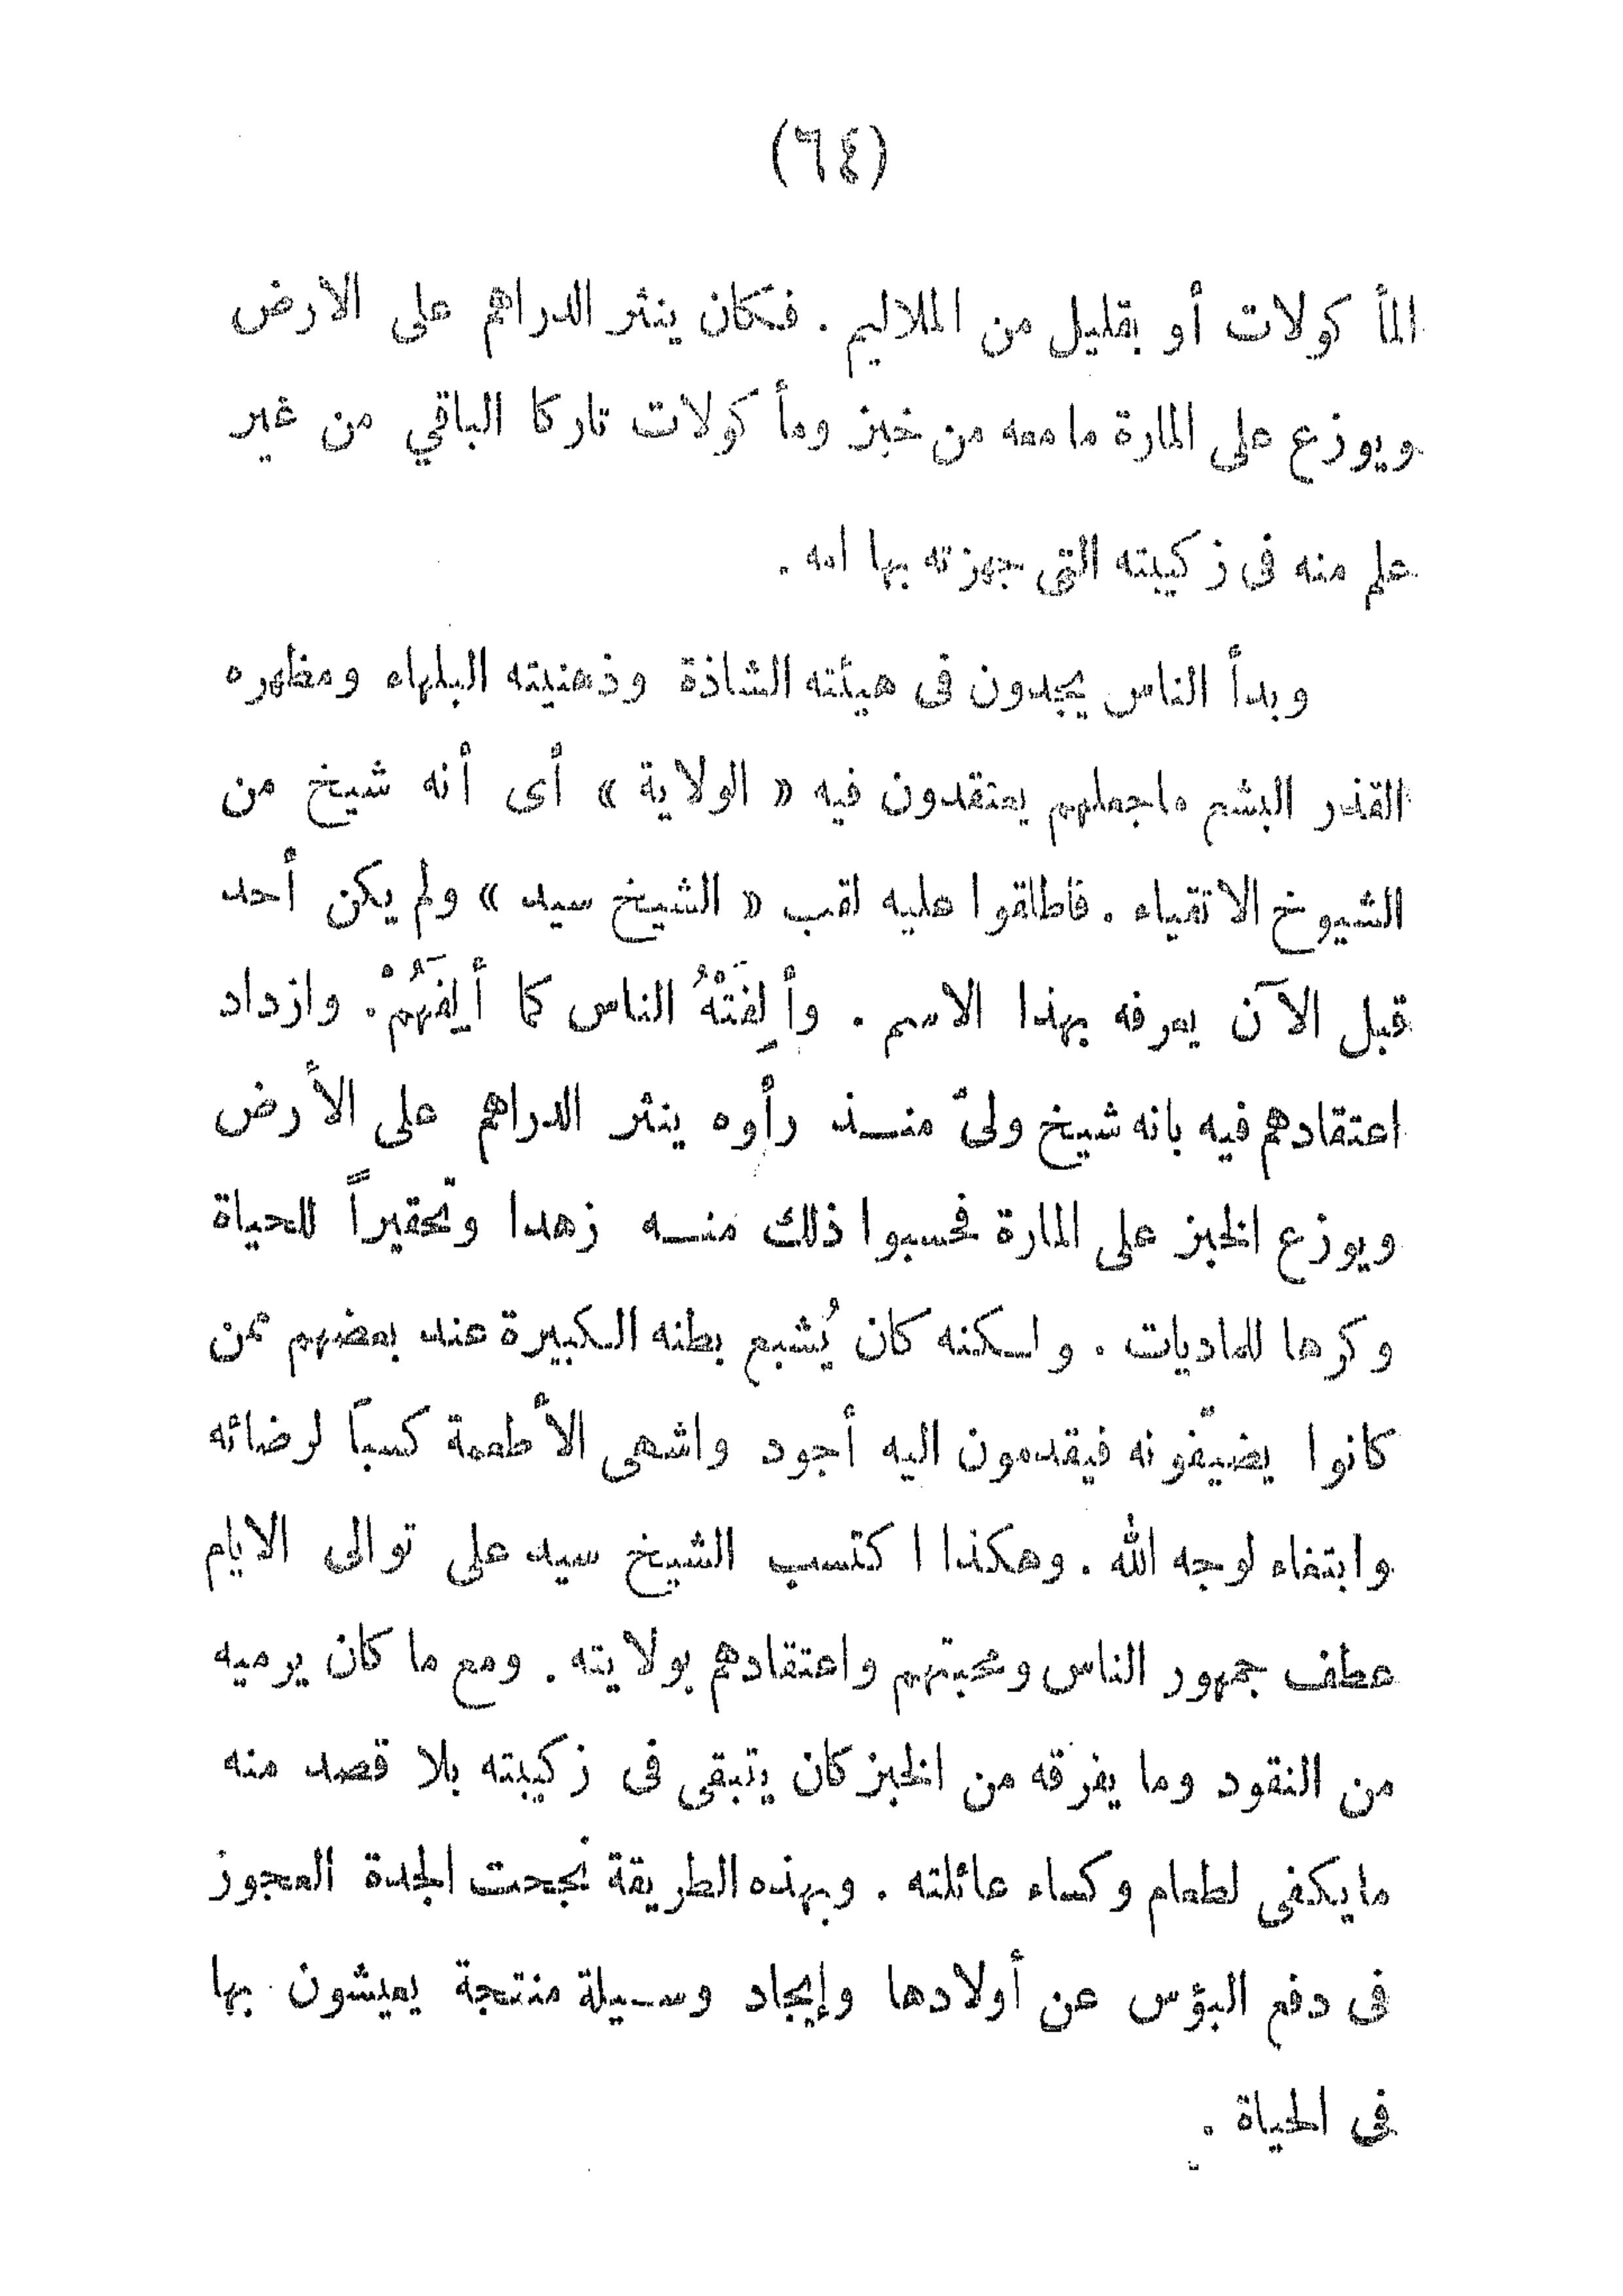 (٦٤)
المأ كولات أو بقليل من الملاليم . فكان ينثر الدراهم على الارض
ويوزع على المارة مامعه من خبز ومأ كولات تاركا الباقي من غير
علم منه فى زكيبته التى جهزته بها امه .
وبدأ الناس يجدون فى هيئته الشاذة وذهنيته البلهاء ومظهره
القذر البشع ماجعلهم يعتقدون فيه « الولاية » أى أنه شيخ من
الشيوخ الاتقياء . فاطلقوا عليه لقب « الشيخ سيد » ولم يكن أحد
قبل الآن يعرفه بهذا الاسم . وأَلِفَتْهُ الناس كما أَلِفَهُمْ . وازداد
اعتقادهم فيه بانه شيخ ولىّ منـذ رأوه ينثر الدراهم على الأرض
ويوزع الخبز على المارة فحسبوا ذلك منـه زهدا وتحقيراً للحياة
وكرها للماديات . ولـكنه كان يُشبع بطنه الـكبيرة عند بعضهم ممن
كانوا يضيّفونه فيقدمون اليه أجود واشهى الأطعمة كسباً لرضائه
وابتغاء لوجه الله . وهكذا اكتسب الشيخ سيد على توالى الايام
عطف جمهور الناس ومحبتهم واعتقادهم بولايته . ومع ما كان يرميه
من النقود وما يفرقه من الخبز كان يتبقى فى زكيبته بلا قصد منه
مايكفى لطعام وكساء عائلته . وبهذه الطريقة نجحت الجدة العجوز
فى دفع البؤس عن أولادها وإيجاد وسـيلة منتجة يعيشون بها
فى الحياة .